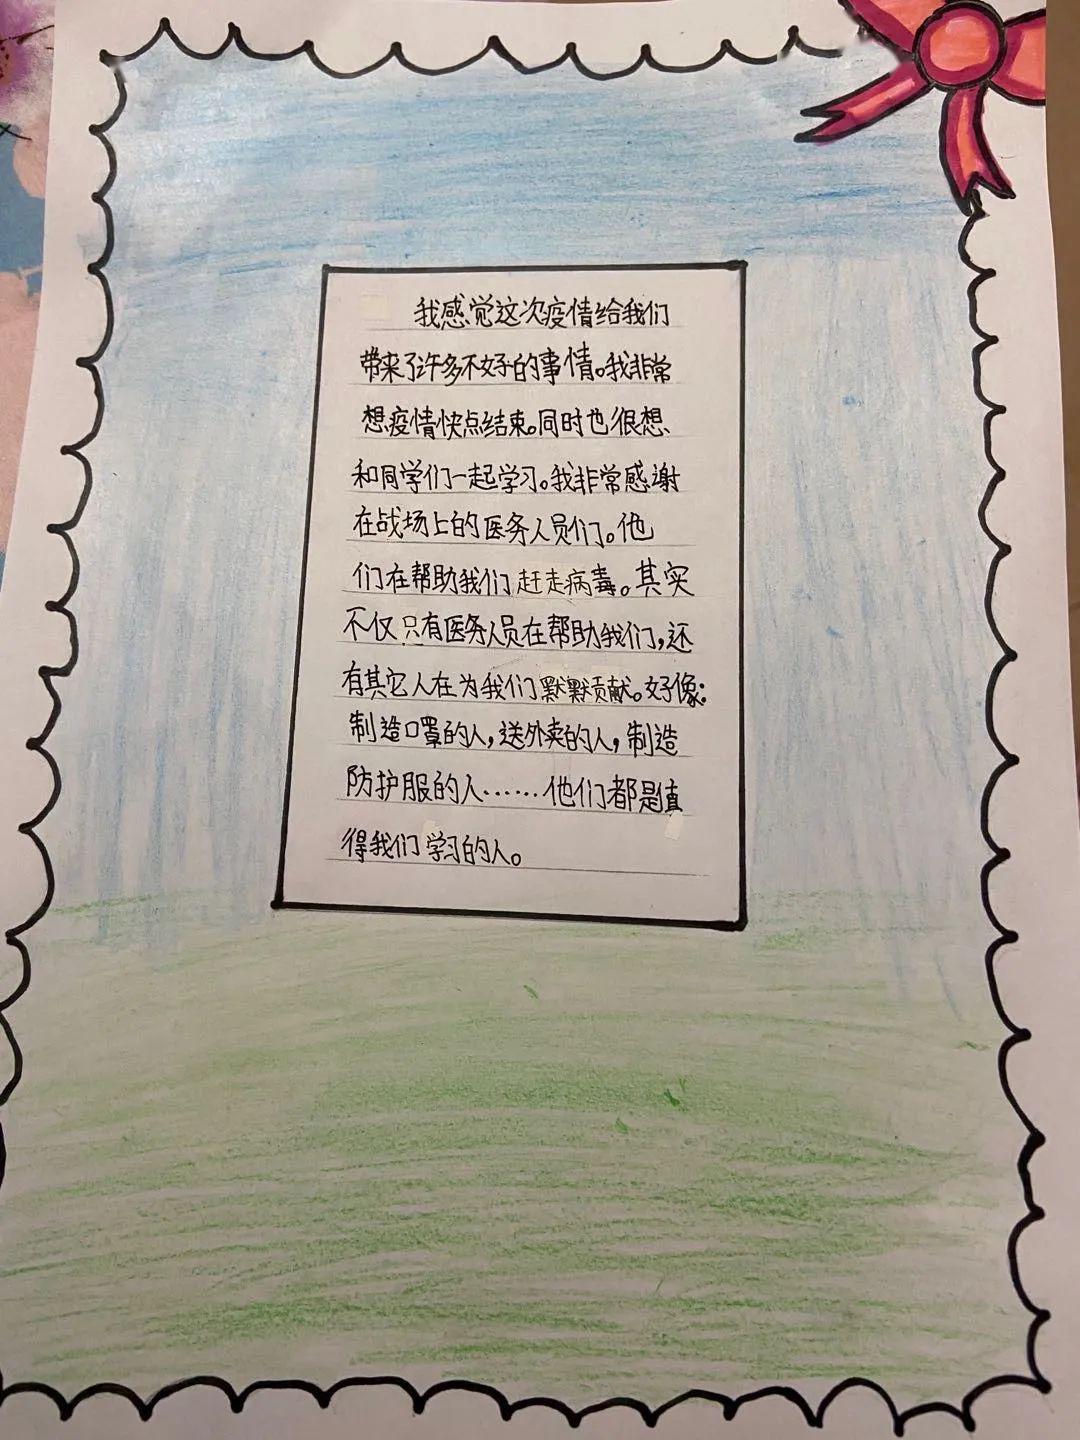 我感觉这次疫情给我们
带来了许多不好的事情。我非常
想疫情快点结束。同时也很想
和同学们一起学习。我非常感谢
在战场上的医务人员们。他
们在帮助我们赶走病毒。其实
不仅只有医务人员在帮助我们，还
有其它人在为我们默默贡献。好像：
制造口罩的人，送外卖的人，制造
防护服的人……他们都是值
得我们学习的人。